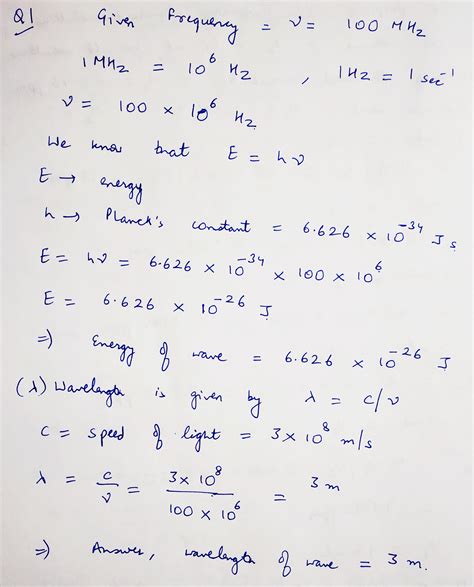 Q1 Given frequency = ν = 100 MHz
1 MHz = 10^6 Hz , 1Hz = 1 sec^-1
ν = 100 × 10^6 Hz
We know that E = hν
E → energy
h → Planck's constant = 6.626 × 10^-34 J s
E = hν = 6.626 × 10^-34 × 100 × 10^6
E = 6.626 × 10^-26 J
⇒ Energy of wave = 6.626 × 10^-26 J
(λ) Wavelength is given by λ = c/ν
C = speed of light = 3× 10^8 m/s
λ = c/ν = 3× 10^8 / 100 × 10^6 = 3 m
⇒ Answer, wavelength of wave = 3 m.